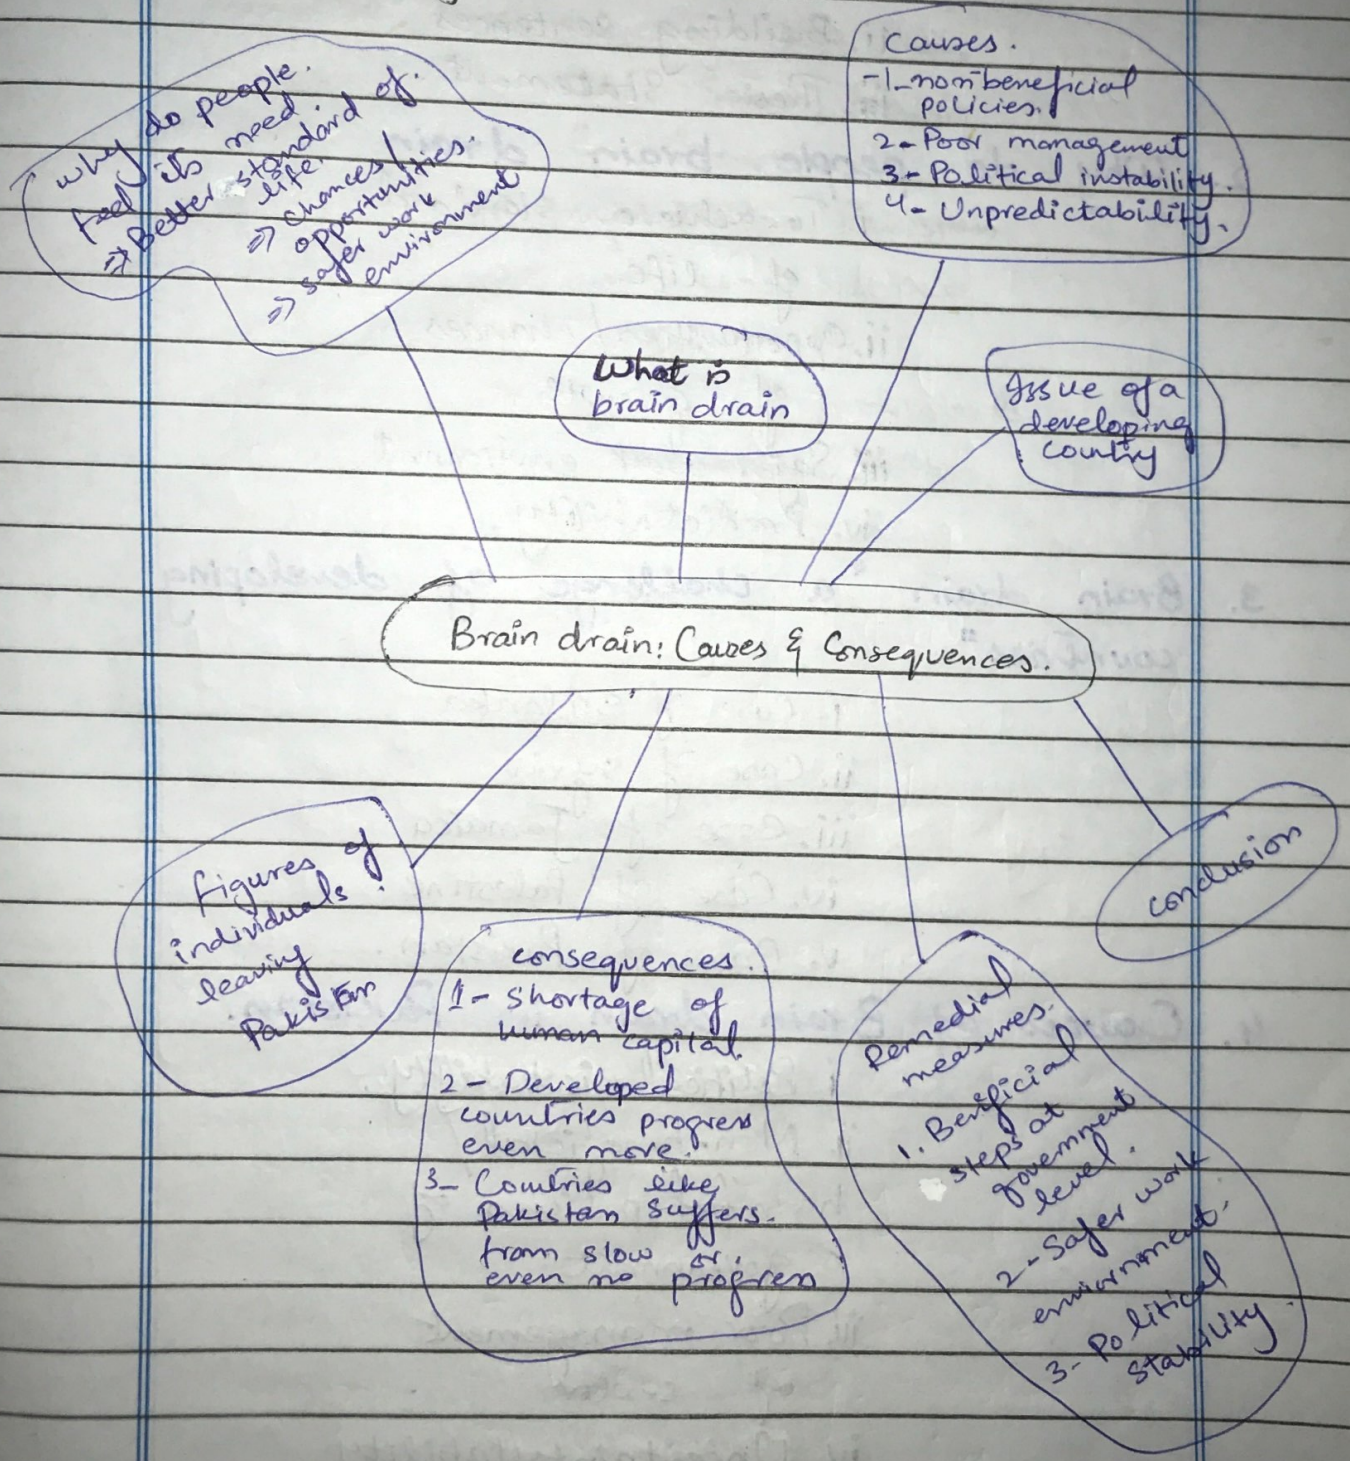 Why do people.
feel its need
⇒ Better standard of.
life.
⇒ chances/
opportunities.
⇒ safer work
environment
Causes.
-1- nonbeneficial
policies.
2- Poor management
3- Political instability.
4- Unpredictability.
What is
brain drain
Issue of a
developing
country
Brain drain: Causes & Consequences.
figures of
individuals.
leaving
Pakistan
consequences.
1- Shortage of
human capital.
2- Developed
countries progress
even more.
3- Countries like
Pakistan suffers.
from slow or.
even no progress
Remedial
measures.
1. Beneficial
steps at
government
level.
2- Safer work
enviornment.
3- Political
stability.
conclusion